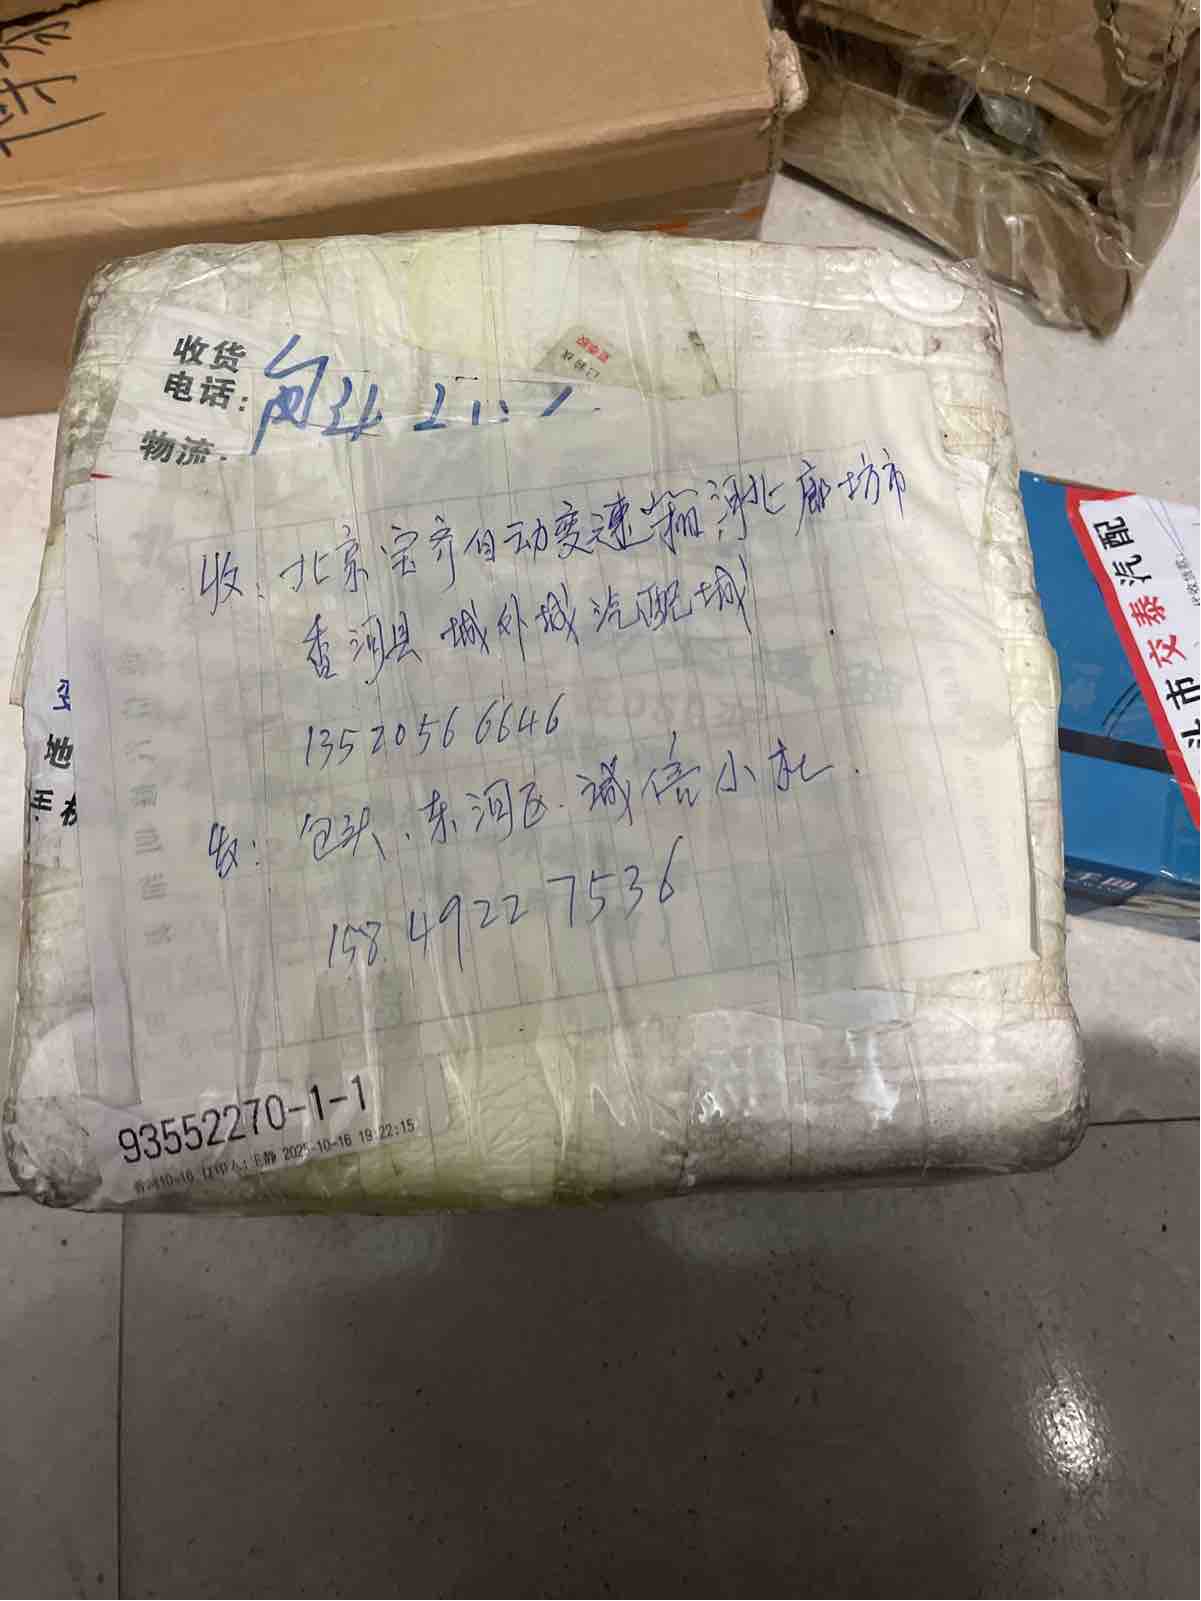 收货
电话:
物流:
收:北京宝齐自动变速箱河北廊坊市
香河县城外城汽配城
13520566646
发:包头.东河区.诚信小杜.
158.49227536
地
93552270-1-1
香河10-16 打印人:王静 2025-10-16 19:22:15
头市交泰汽配